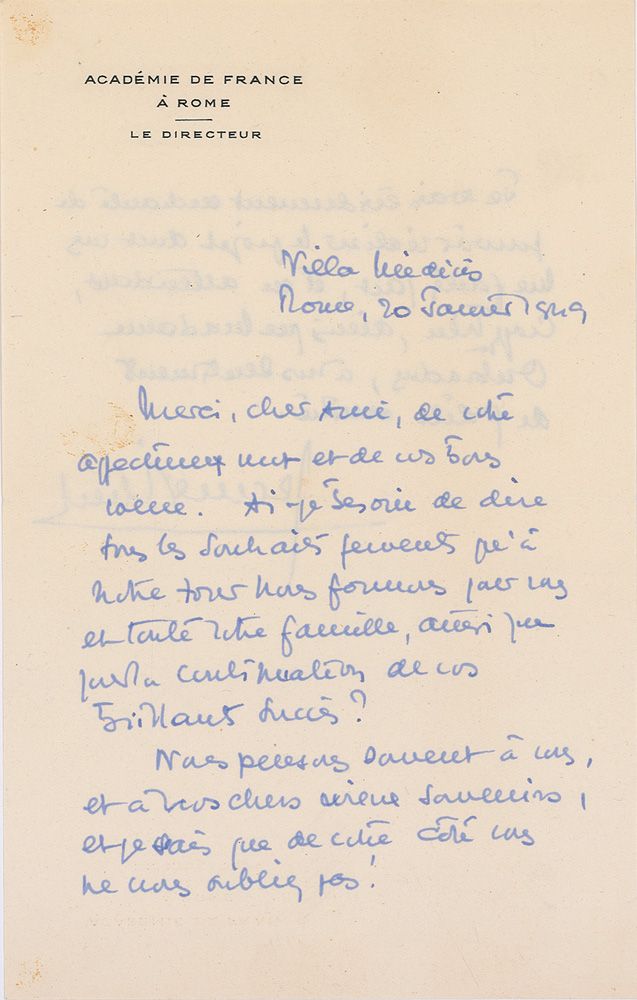 ACADÉMIE DE FRANCE
À ROME
LE DIRECTEUR
Villa Médicis
Rome, 20 Janvier 1949
Merci, cher Ami, de votre
affectueux mot et de vos bons
voeux. Ai-je besoin de dire
tous les souhaits fervents qu'à
notre tour nous formons pour vous
et toute votre famille, ainsi que
pour la continuation de vos
brillants succès ?
Nous pensons souvent à vous,
et à nos chers vieux souvenirs,
et je sais que de votre côté vous
ne nous oubliez pas !